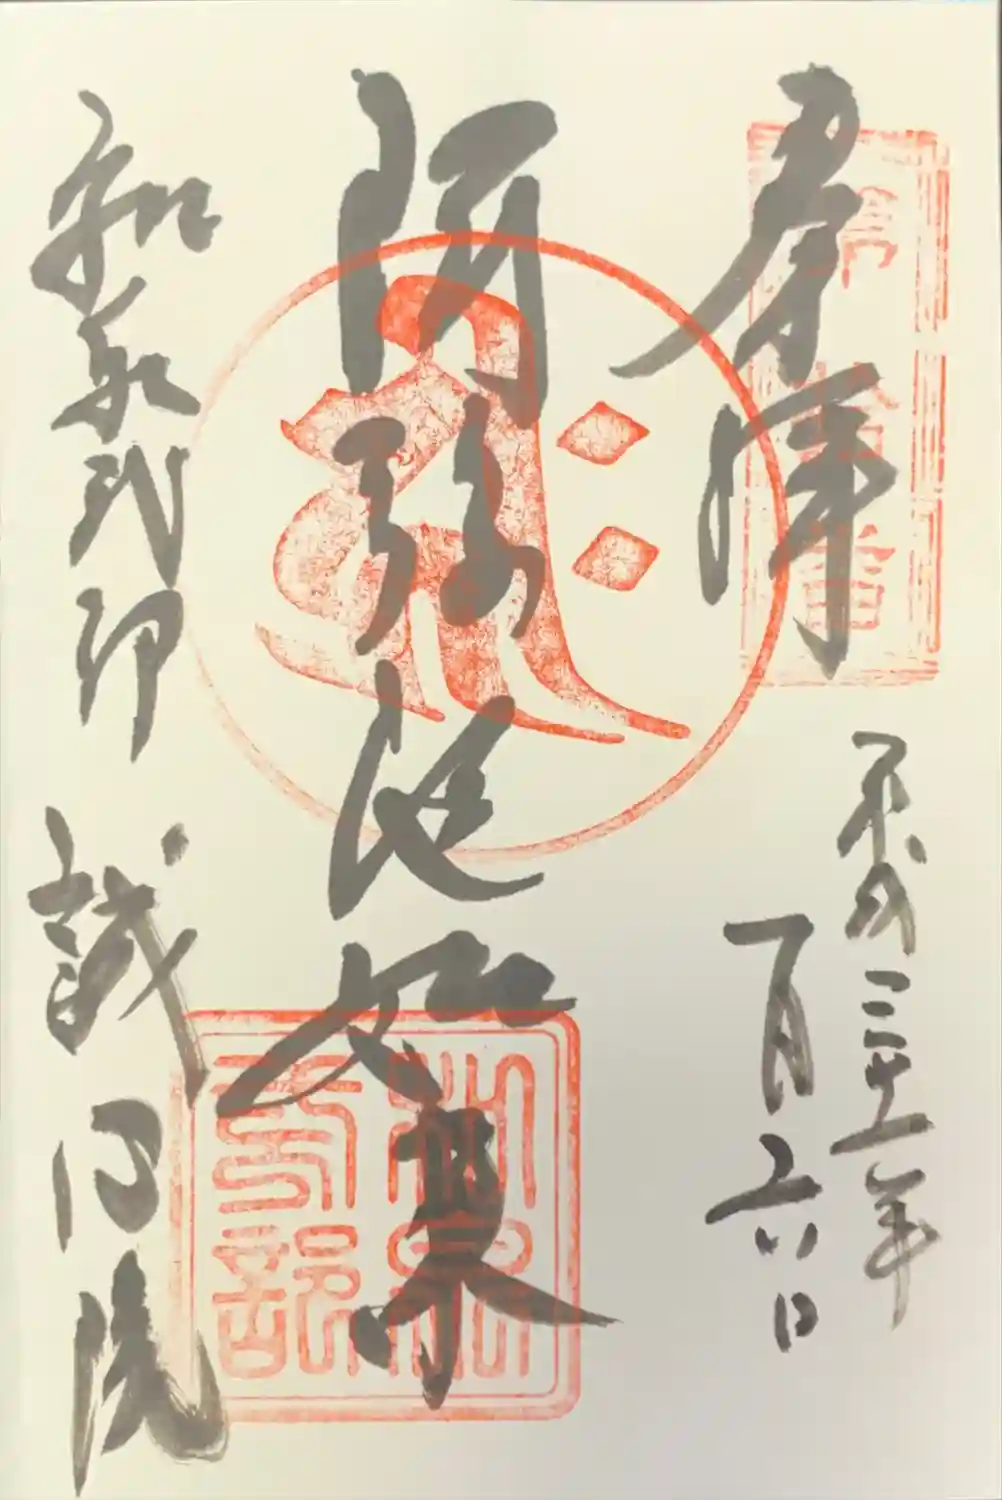 奉拝
平成三十一年
一月六日
阿弥陀如来
和泉式部 誠心院